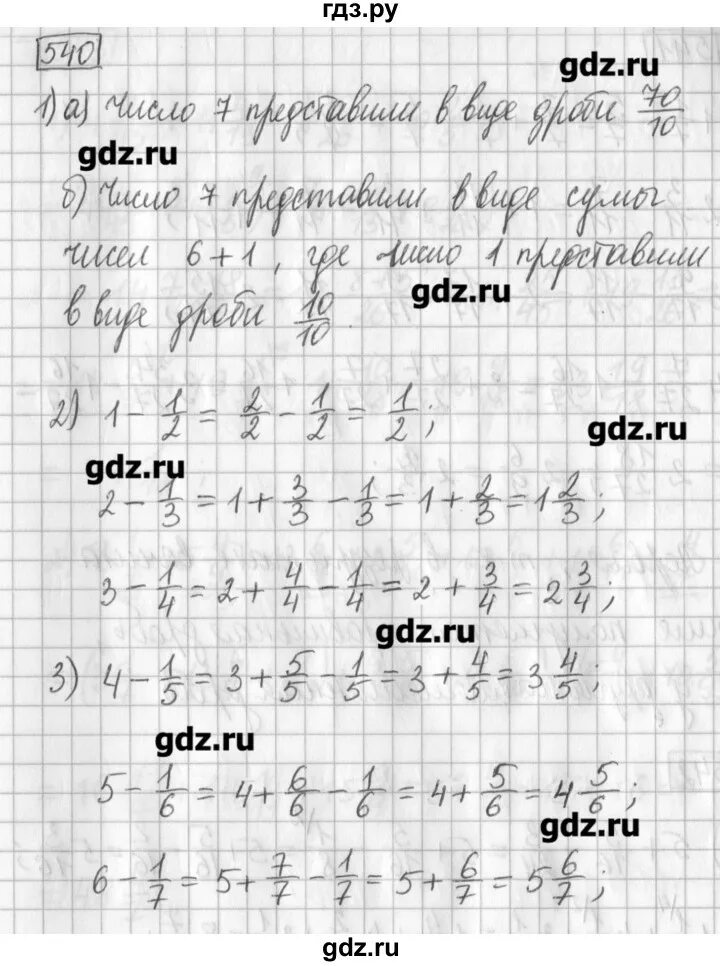 гдз.ру
540
1) а) Число 7 представили в виде дроби 70/10
gdz.ru
gdz.ru
б) Число 7 представили в виде сумы
чисел 6 + 1, где число 1 представили
gdz.ru
в виде дроби 10/10.
2) 1 - 1/2 = 2/2 - 1/2 = 1/2;
gdz.ru
gdz.ru
2 - 1/3 = 1 + 3/3 - 1/3 = 1 + 2/3 = 1 2/3;
3 - 1/4 = 2 + 4/4 - 1/4 = 2 + 3/4 = 2 3/4;
gdz.ru
3) 4 - 1/5 = 3 + 5/5 - 1/5 = 3 + 4/5 = 3 4/5;
gdz.ru
5 - 1/6 = 4 + 6/6 - 1/6 = 4 + 5/6 = 4 5/6;
gdz.ru
6 - 1/7 = 5 + 7/7 - 1/7 = 5 + 6/7 = 5 6/7;
gdz.ru